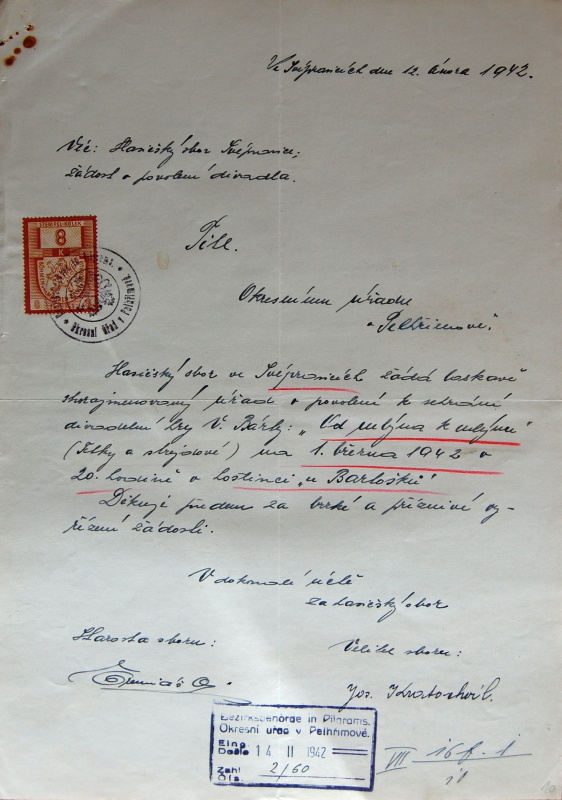 Ve Svépravicích dne 12. února 1942.
Věc: Hasičský sbor Svépravice;
žádost o povolení divadla.
STEMPEL-KOLEK
8
K
Okresní úřad v
Titl.
Okresnímu úřadu
v Pelhřimově.
Hasičský sbor ve Svépravicích žádá laskavě
shorajmenovaný úřad o povolení k sehrání
divadelní hry V. Bárty: „Od mlýna k mlýnu“
(Tetky a strejdové) na 1. března 1942 v
20. hodině v hostinci „u Bartošků“
Děkuje předem za brzké a příznivé vy-
řízení žádosti.
V dokonalé úctě
za hasičský sbor
Starosta sboru:
Velitel sboru:
Jos. Kratochvíl.
Bezirksbehörde in Pilgrams.
Okresní úřad v Pelhřimově.
Eing.
Došlo 14 II 1942
Zahl
Čís. 2/60
VIII